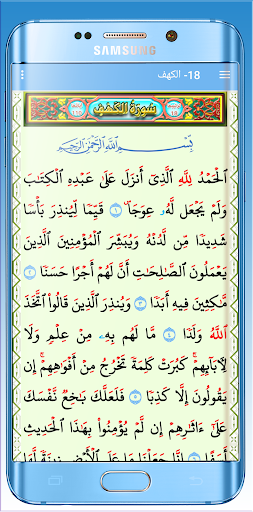 SAMSUNG
18- الكهف
سورة الكهف
بِسْمِ اللَّهِ الرَّحْمَٰنِ الرَّحِيمِ
ٱلْحَمْدُ لِلَّهِ ٱلَّذِىٓ أَنزَلَ عَلَىٰ عَبْدِهِ ٱلْكِتَٰبَ
وَلَمْ يَجْعَل لَّهُۥ عِوَجَا ۜ ١ قَيِّمًا لِّيُنذِرَ بَأْسًا
شَدِيدًا مِّن لَّدُنْهُ وَيُبَشِّرَ ٱلْمُؤْمِنِينَ ٱلَّذِينَ
يَعْمَلُونَ ٱلصَّٰلِحَٰتِ أَنَّ لَهُمْ أَجْرًا حَسَنًا ٢
مَّٰكِثِينَ فِيهِ أَبَدًا ٣ وَيُنذِرَ ٱلَّذِينَ قَالُوا۟ ٱتَّخَذَ
ٱللَّهُ وَلَدًا ٤ مَّا لَهُم بِهِۦ مِنْ عِلْمٍ وَلَا
لِءَابَآئِهِمْ ۚ كَبُرَتْ كَلِمَةً تَخْرُجُ مِنْ أَفْوَٰهِهِمْ ۚ إِن
يَقُولُونَ إِلَّا كَذِبًا ٥ فَلَعَلَّكَ بَٰخِعٌ نَّفْسَكَ
عَلَىٰٓ ءَاثَٰرِهِمْ إِن لَّمْ يُؤْمِنُوا۟ بِهَٰذَا ٱلْحَدِيثِ
أَسَفًا ٦ إِنَّا جَعَلْنَا مَا عَلَى ٱلْأَرْضِ زِينَةً لَّهَا